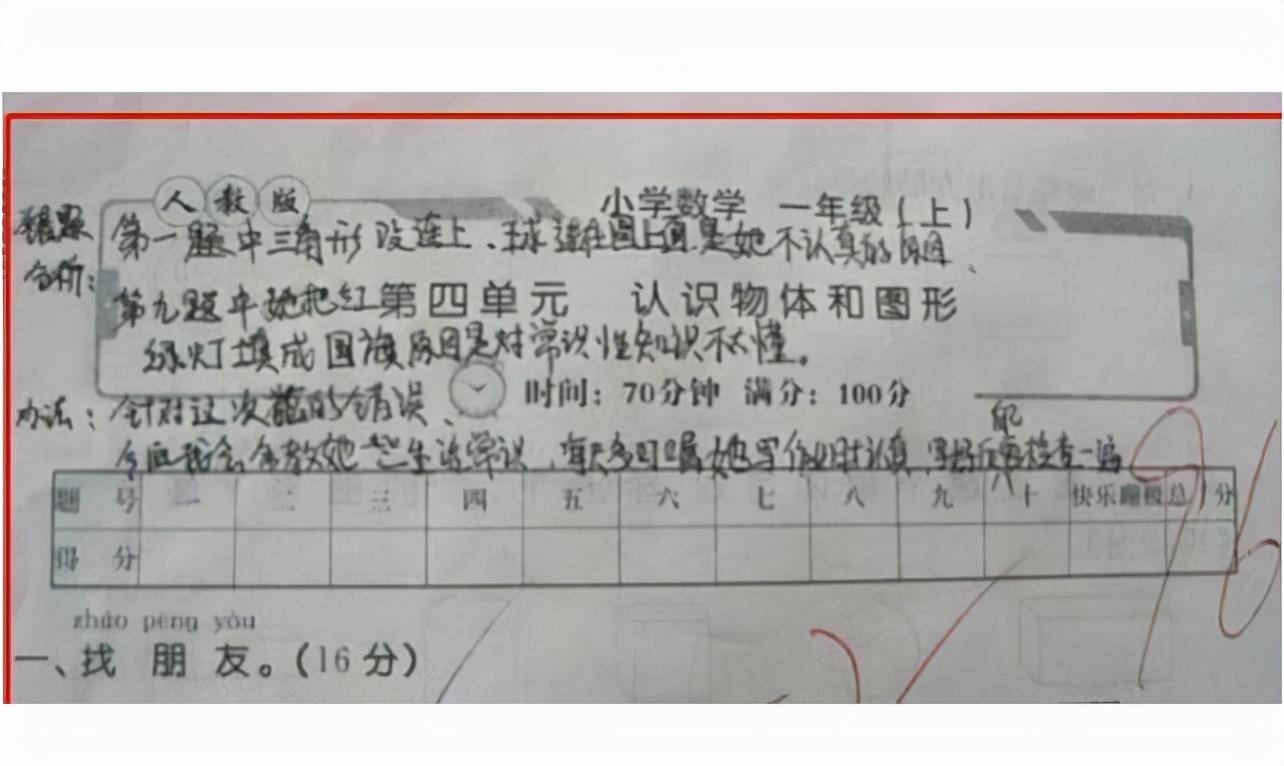 人教版
小学数学 一年级(上)
错题 第一题中三角形没连上、球连在圆上面是她不认真的原因、
分析:
第九题中她把红
第四单元 认识物体和图形
绿灯填成国旗原因是对常识性知识不太懂。
时间:70分钟 满分:100分
办法:针对这次的错误、
今后我会多教她一些生活常识、每天多叮嘱她写作业时认真,写好后再检查一遍
题号 一 二 三 四 五 六 七 八 九 十 快乐 总分
得分
96
zhǎo péng yǒu
一、找朋友。(16分)